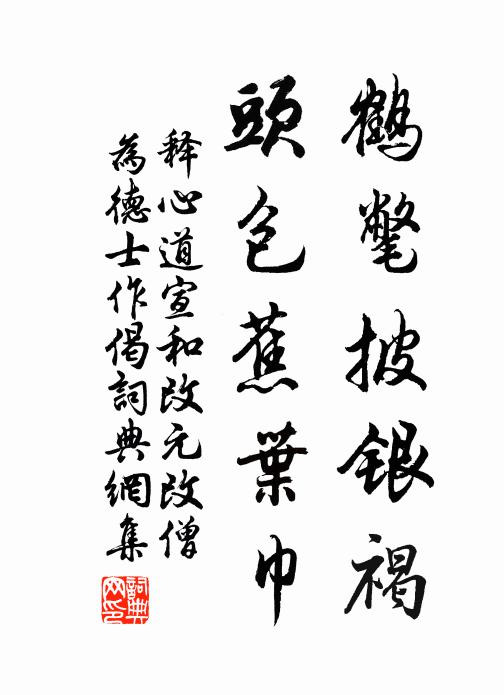 鶴氅披銀褐
頭包蕉葉巾
释心道宣和改元改僧
為德士作偈詞典網集
詞典網印